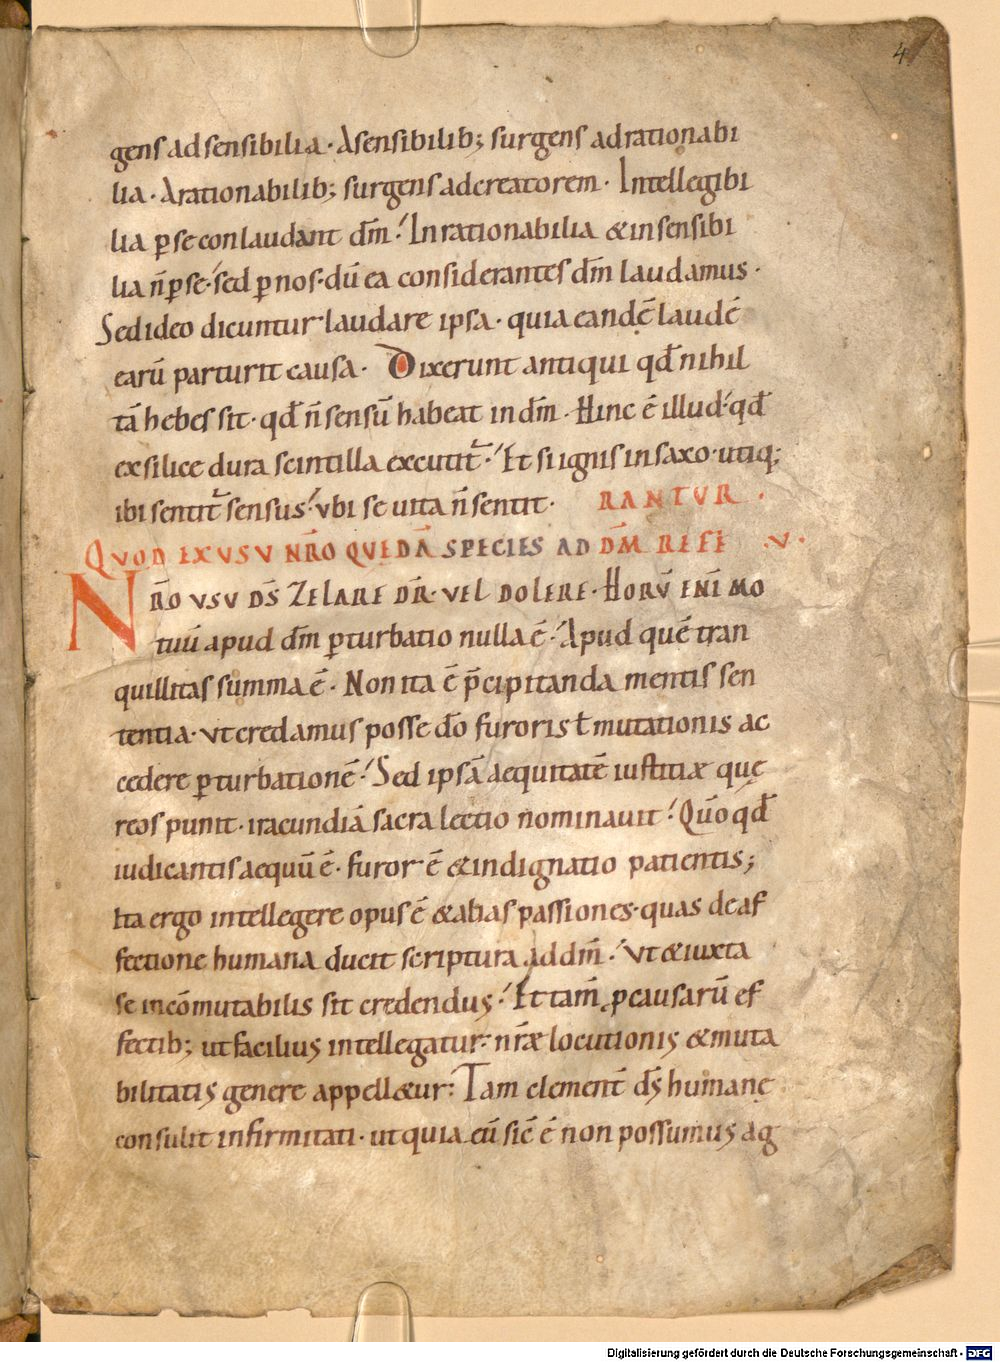 4
gens ad sensibilia · Asensibilib; surgens adrationabi
lia · Arationabilib; surgens adcreatorem · Intellegibi
lia ꝑ se conlaudant dm̄ · Inrationabilia &insensibi
lia n̄ ꝑse · sed ꝑ nos · dū ea considerantes dm̄ laudamus ·
Sed ideo dicuntur laudare ipsa · quia eandē laudē
earū parturit causa · Dixerunt antiqui qd̄ nihil
tā hebes sit · qd̄ n̄ sensū habeat in dm̄ · Hinc ē illud · qd̄
ex silice dura scintilla excutit̄ · Et si ignis in saxo · utiq;
ibi sentit̄ sensus · vbi se uita n̄ sentit · RANTUR ·
QUOD EX USU NR̄O QUEDĀ SPECIES AD DM̄ REFE · V ·
NR̄O USU DS̄ ZELARE DR̄ · VEL DOLERE · HORŪ ENĪ MO
tuū apud dm̄ ꝑturbatio nulla ē · Apud quē tran
quillitas summa ē · Non ita ē p̄cipitanda mentis sen
tentia · ut credamus posse dō furoris ł mutationis ac
cedere ꝑturbationē · Sed ipsā aequitatē iustitiæ quę
reos punit · iracundiā sacra lectio nominauit · Quō qd̄
iudicantis aequū ē · furor ē &indignatio patientis;
Ita ergo intellegere opus ē &alias passiones · quas de af
fectione humana ducit scriptura ad dm̄ · Ut &iuxta
se incōmutabilis sit credendus · Et tam̄ ꝑ causarū ef
fectib; ut facilius intellegatur · nr̄æ locutionis &muta
bilitatis genere appell&ur: Tam clement̄ ds̄ humanę
consulit infirmitati · ut quia eū sic̄ ē non possumus ag
Digitalisierung gefördert durch die Deutsche Forschungsgemeinschaft - DFG